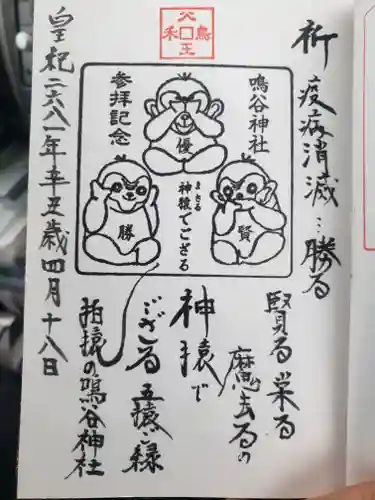 祈
疫病消滅…勝る
賢る 栄る
魔去るの
神猿で
ござる 五猿ご縁
猿の鳴谷神社
鳴谷神社
参拝記念
優
賢
勝
まさる
神猿でござる
皇紀二六八一年辛丑歳四月十八日